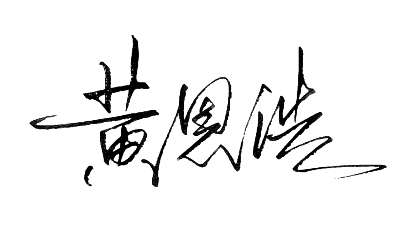 黄恩浩